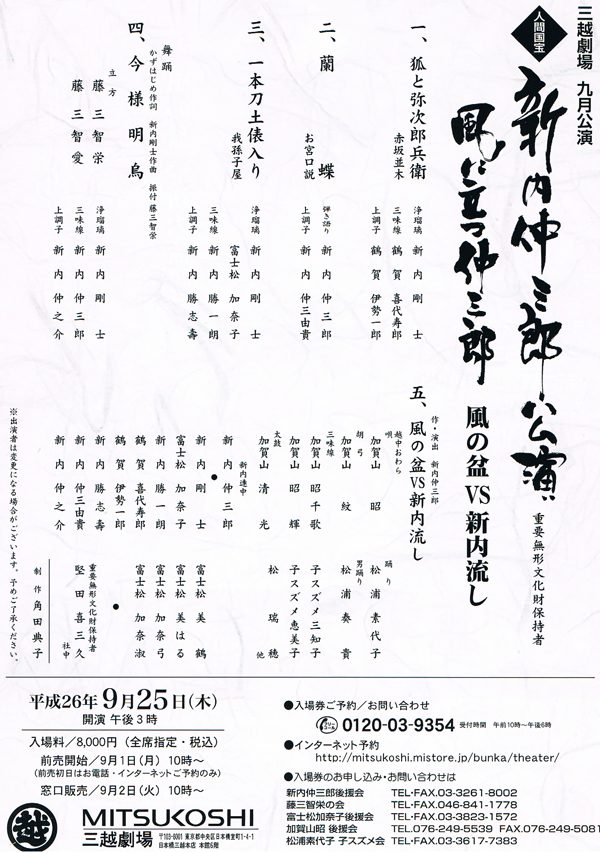 三越劇場 九月公演
人間国宝
新内仲三郎公演
重要無形文化財保持者
風に立つ仲三郎
風の盆VS新内流し
一、狐と弥次郎兵衛
赤坂並木
浄瑠璃 新内剛士
三味線 鶴賀喜代寿郎
上調子 鶴賀伊勢一郎
二、蘭蝶
お宮口説
弾き語り 新内仲三郎
上調子 新内仲三由貴
三、一本刀土俵入り
我孫子屋
浄瑠璃 新内剛士
富士松加奈子
三味線 新内勝一朗
上調子 新内勝志壽
四、今様明烏
舞踊
かずはじめ作詞 新内剛士作曲 振付藤三智栄
立方
藤三智栄
藤三智愛
浄瑠璃 新内剛士
三味線 新内仲三郎
上調子 新内仲之介
五、風の盆VS新内流し
作・演出 新内仲三郎
越中おわら
唄 加賀山昭
胡弓 加賀山紋
三味線 加賀山昭千歌
加賀山昭輝
太鼓 加賀山清光
踊り 松浦素代子
男踊り 松浦奏貴
子スズメ三知子
子スズメ恵美子
松瑞穂 他
新内連中
新内仲三郎
●
新内剛士
富士松加奈子
新内勝一朗
鶴賀喜代寿郎
鶴賀伊勢一郎
新内勝志壽
新内仲三由貴
新内仲之介
富士松美鶴
富士松美はる
富士松加奈弓
富士松加奈淑
●
重要無形文化財保持者
堅田喜三久 社中
制作 角田典子
※出演者は変更になる場合がございます。予めご了承ください。
平成26年9月25日(木)
開演 午後3時
入場料/8,000円(全席指定・税込)
前売開始/9月1日(月)10時〜
(前売初日はお電話・インターネットご予約のみ)
窓口販売/9月2日(火)10時〜
越
MITSUKOSHI
三越劇場
〒103-8001 東京都中央区日本橋室町1-4-1
日本橋三越本店 本館6階
●入場券ご予約/お問い合わせ
0120-03-9354 受付時間 午前10時〜午後6時
●インターネット予約
http://mitsukoshi.mistore.jp/bunka/theater/
●入場券のお申し込み・お問い合わせは
新内仲三郎後援会 TEL・FAX.03-3261-8002
藤三智栄の会 TEL・FAX.046-841-1778
富士松加奈子後援会 TEL・FAX.03-3823-1572
加賀山昭 後援会 TEL.076-249-5539 FAX.076-249-5081
松浦素代子 子スズメ会 TEL・FAX.03-3617-7383